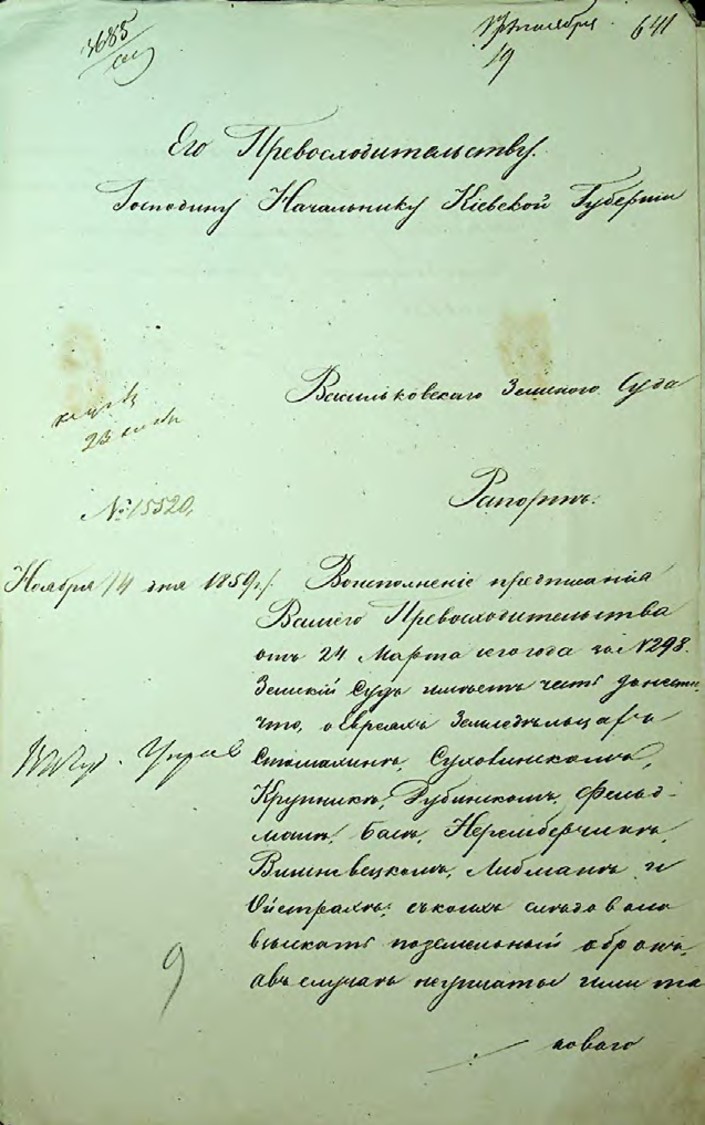 3685
641
19
Его Превосходительству.
Господину Начальнику Кіевской Губерніи
Васильковскаго Земскаго Суда
№ 15520.
Рапортъ.
Ноября 14 дня 1859 г. Воисполненіе предписанія
Вашего Превосходительства
отъ 24 Марта сего года за № 298.
Земскій Судъ имѣетъ честь донести
что, о Евреяхъ Земледѣльцахъ
Сухолинскомъ,
Крупникѣ, Дубинскомъ, Фельд-
манѣ, Бась,
Вишневецкомъ, Либманѣ и
Ойстрахъ, съ коихъ слѣдовало
взыскать поземельный оброкъ,
авъ случаѣ неуплаты ими та
коваго
9